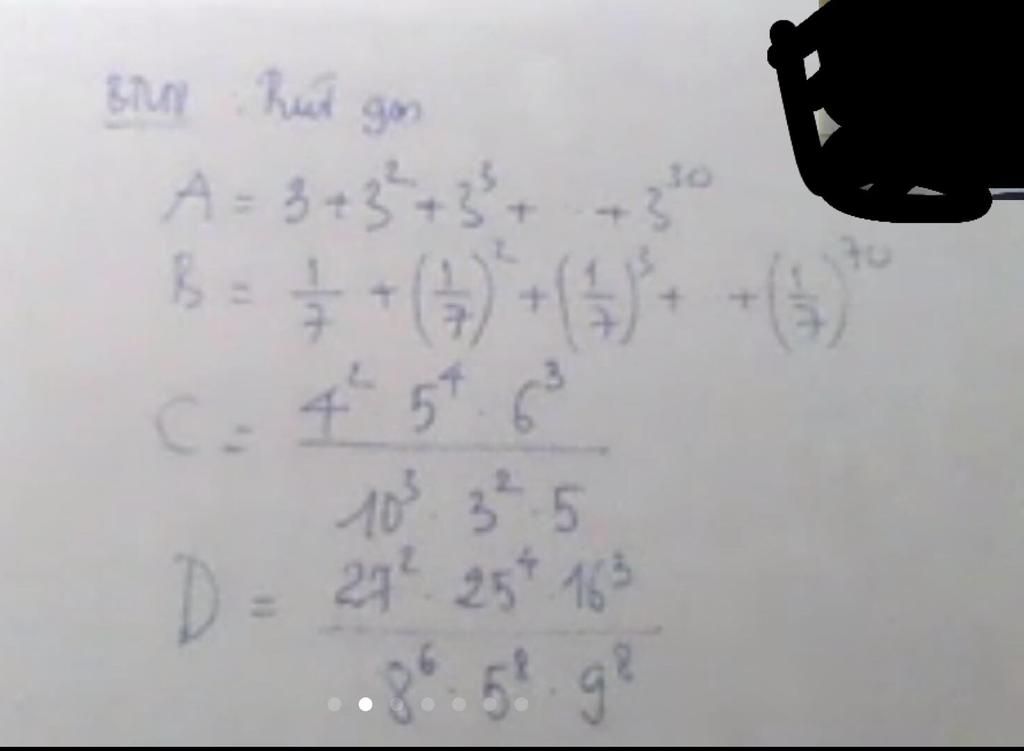 BTVN : Rút gọn
A = 3 + 3² + 3³ + ... + 3³⁰
B = 1/7 + (1/7)² + (1/7)³ + ... + (1/7)⁷⁰
C = (4² 5⁴ . 6³) / (10³ . 3² . 5)
D = (27² . 25⁴ . 16³) / (8⁶ . 5⁸ . 9⁸)